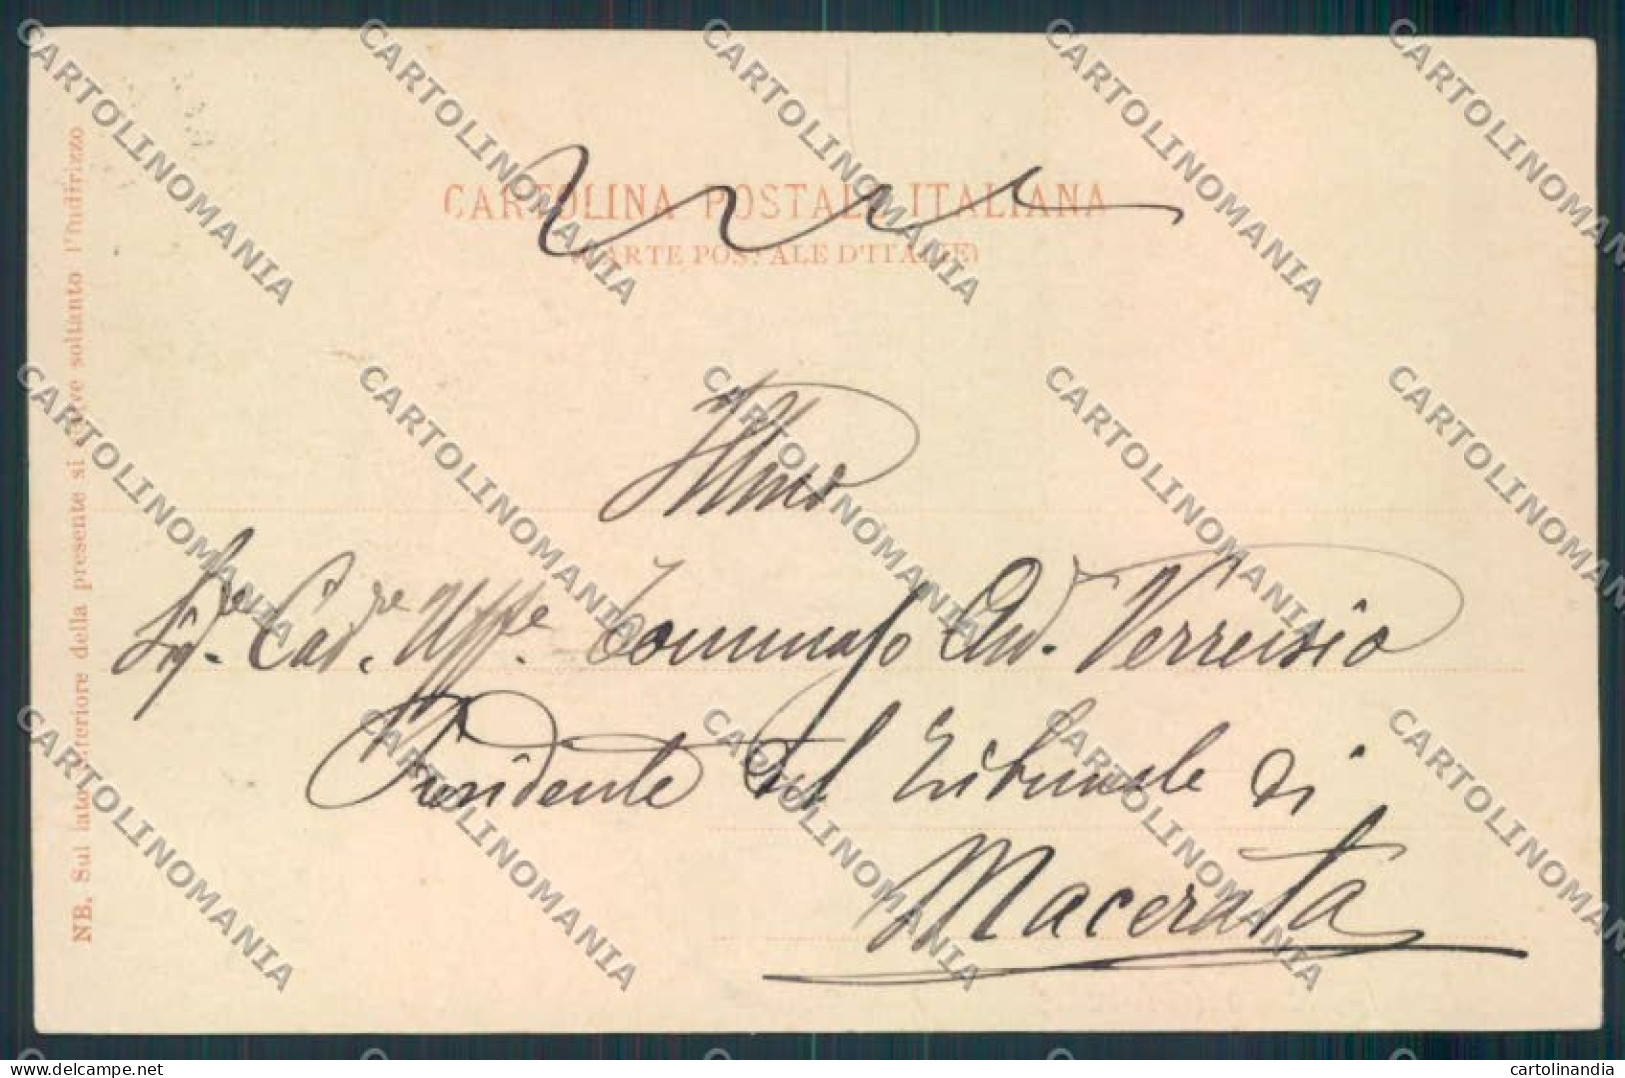 CARTOLINA POSTALE ITALIANA
(CARTE POSTALE D'ITALIE)
NB. Sul lato anteriore della presente si scrive soltanto l'indirizzo
Illmo
Sigre Cavre Uffe Tommaso Avv. Verrusio
Presidente del Tribunale di
Macerata
CARTOLINOMANIA
cartolinandia